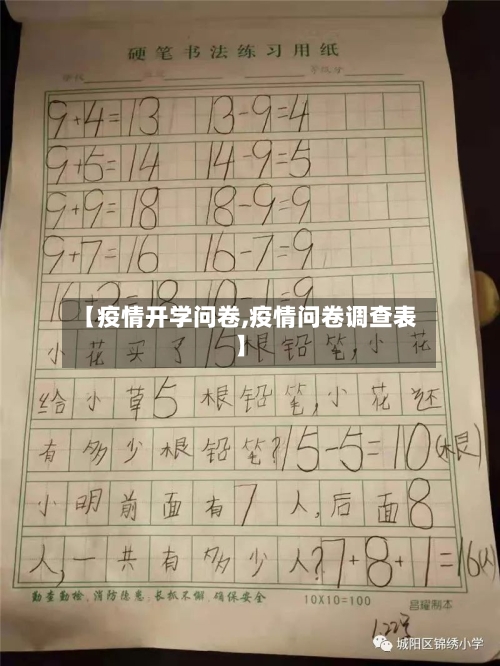 硬笔书法练习用纸
9+4=13 13-9=4
9+5=14 14-9=5
9+9=18 18-9=9
9+7=16 16-7=9
16+2=18 10-1=9
【疫情开学问卷,疫情问卷调查表
】
小花买了15根铅笔,小花
给小草5根铅笔,小花还
有多少根铅笔?15-5=10(根)
小明前面有7人,后面8
人,一共有多少人?7+8+1=16(人)
勤查勤检、消防隐患,长抓不懈、确保安全 10X10=100 吕耀制本
城阳区锦绣小学